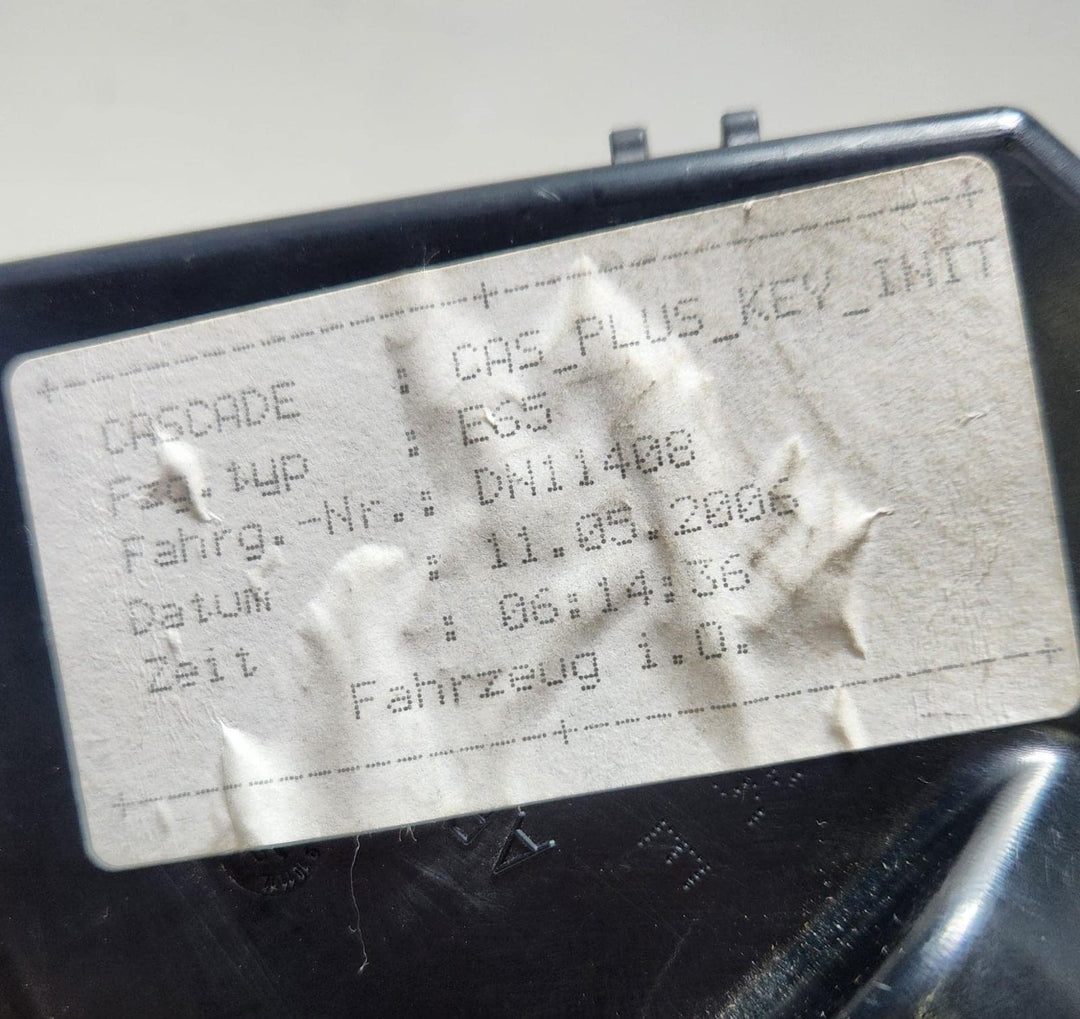 CASCADE : CAS_PLUS_KEY_INIT
Fzg.typ : E65
Fahrg.-Nr.: DW11408
Datum : 11.09.2006
Zeit : 06:14:36
Fahrzeug i.O.